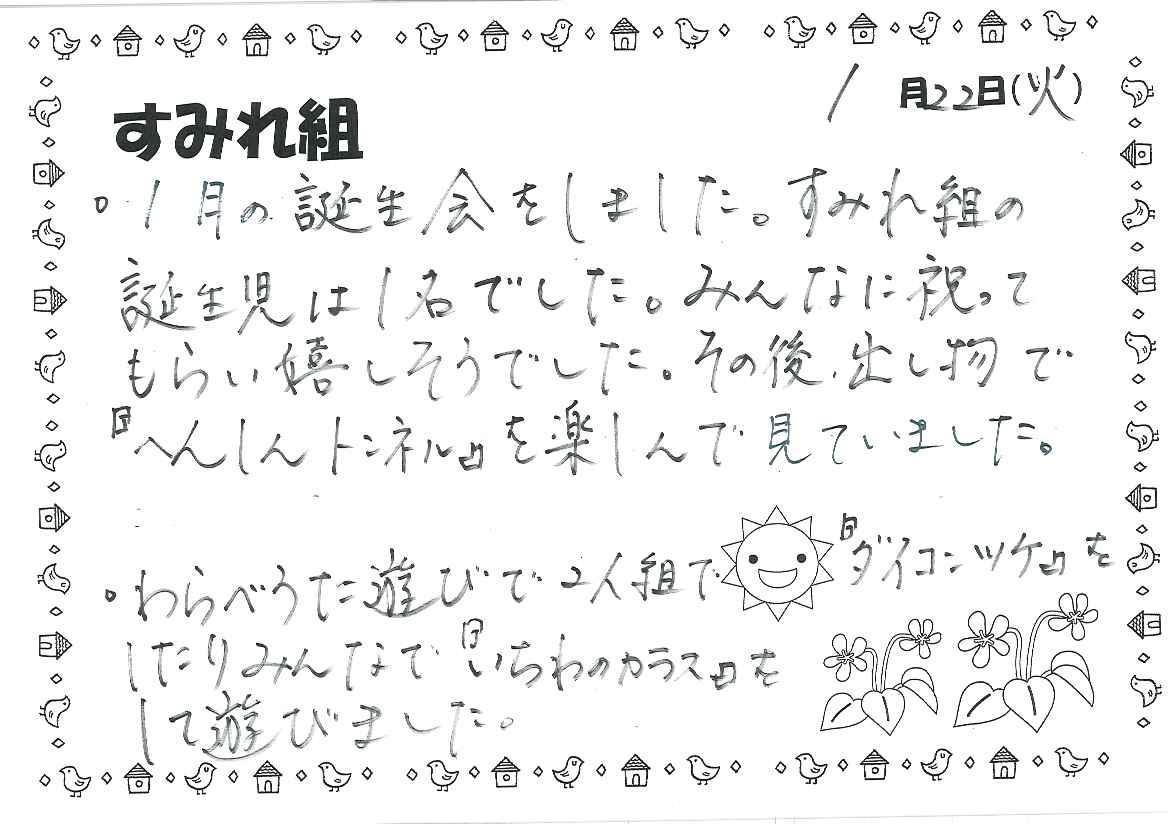 1月22日(火)
すみれ組
。1月の誕生会をしました。すみれ組の
誕生児は1名でした。みんなに祝って
もらい嬉しそうでした。その後、出し物で
『へんしんトンネル』を楽しんで見ていました。
。わらべうた遊びで2人組で『ダイコンツケ』を
したりみんなで『いちわのカラス』を
して遊びました。